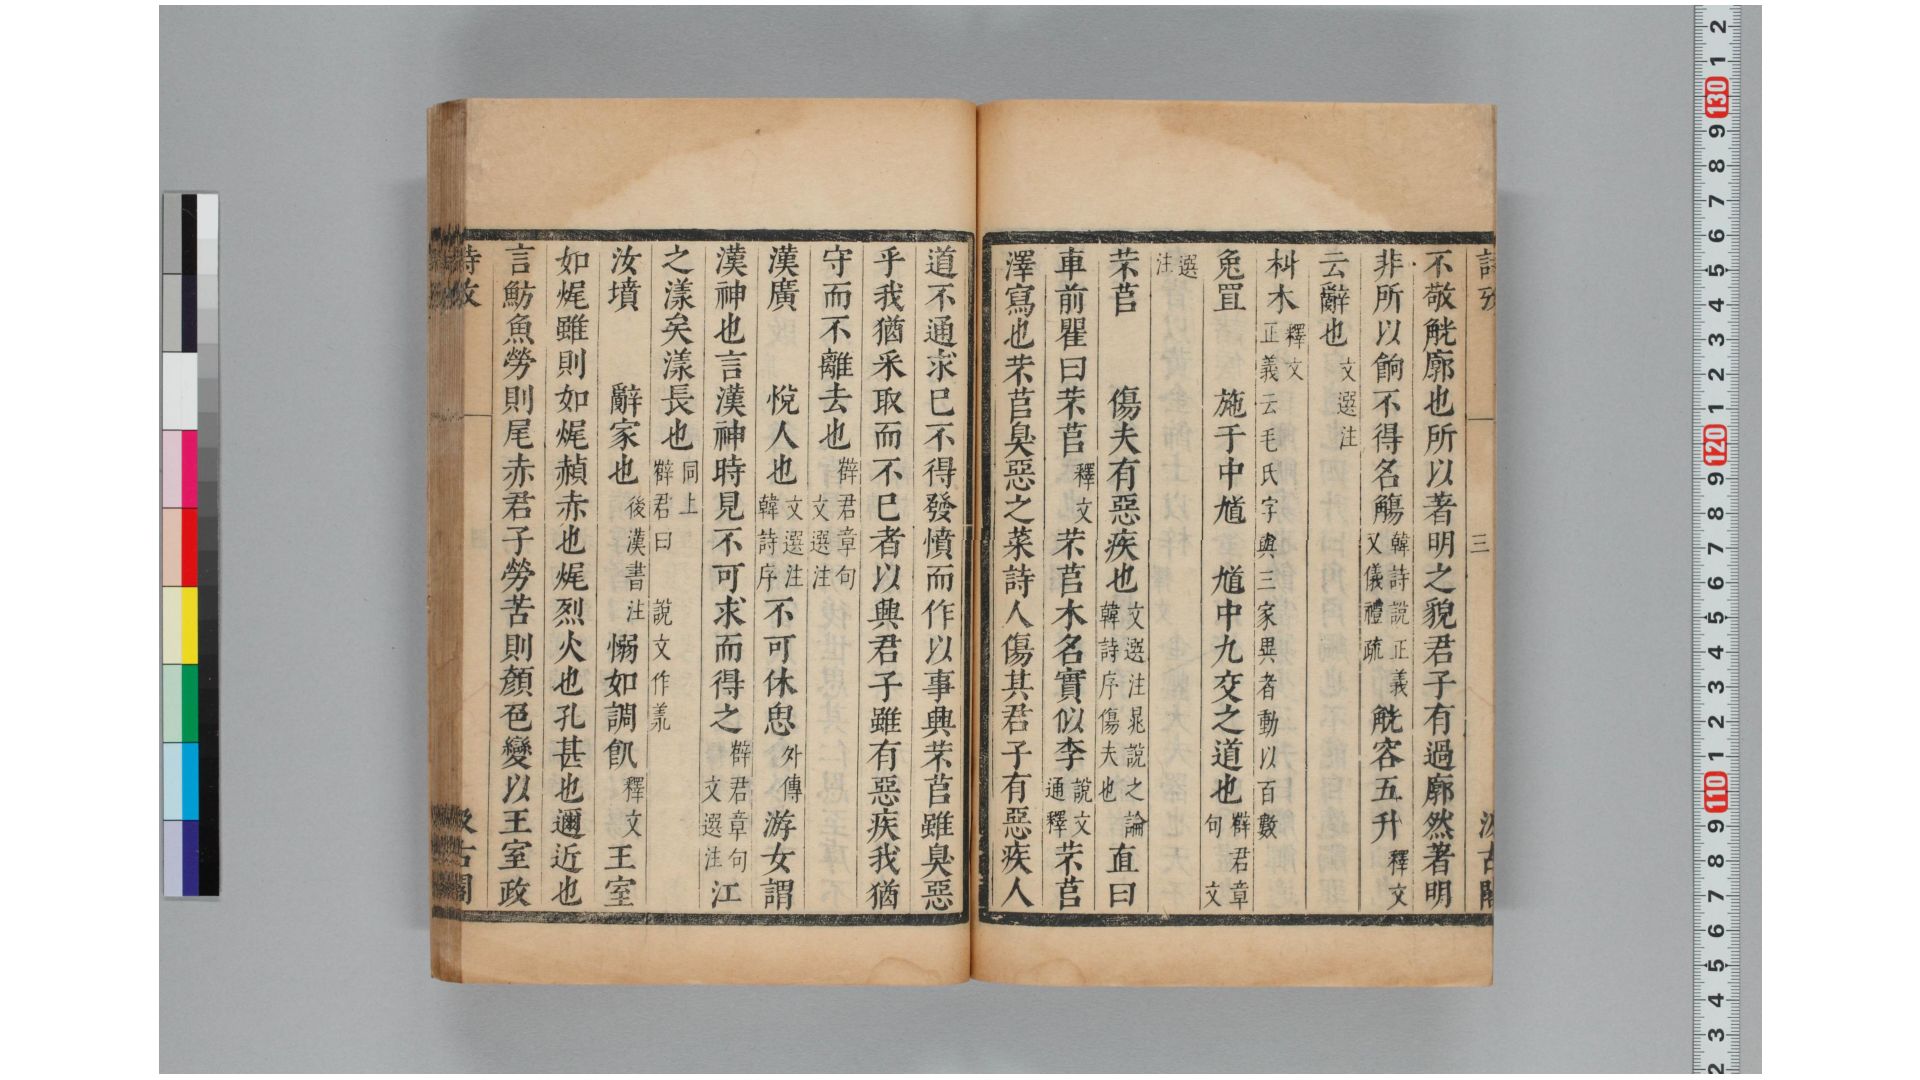 詩攷 三 汲古閣
不敬觥廓也所以著明之貌君子有過廓然著明
非所以餉不得名觴韓詩說正義又儀禮疏觥容五升釋文
云辭也文選注
朻木釋文正義云毛氏字與三家異者動以百數
兔罝 施于中馗 馗中九交之道也薜君章句文
選注
芣苢 傷夫有惡疾也文選注晁說之論韓詩序傷夫也直曰
車前瞿曰芣苢釋文芣苢木名實似李說文通釋芣苢
澤寫也芣苢臭惡之菜詩人傷其君子有惡疾人
道不通求已不得發憤而作以事興芣苢雖臭惡
乎我猶采取而不已者以興君子雖有惡疾我猶
守而不離去也薜君章句文選注
漢廣 悅人也文選注韓詩序不可休思外傳游女謂
漢神也言漢神時見不可求而得之薜君章句文選注江
之漾矣漾長也同上薜君曰 說文作羕
汝墳 辭家也後漢書注惄如調飢釋文王室
如㷄雖則如㷄赬赤也㷄烈火也孔甚也邇近也
言魴魚勞則尾赤君子勞苦則顏色變以王室政
詩攷 汲古閣